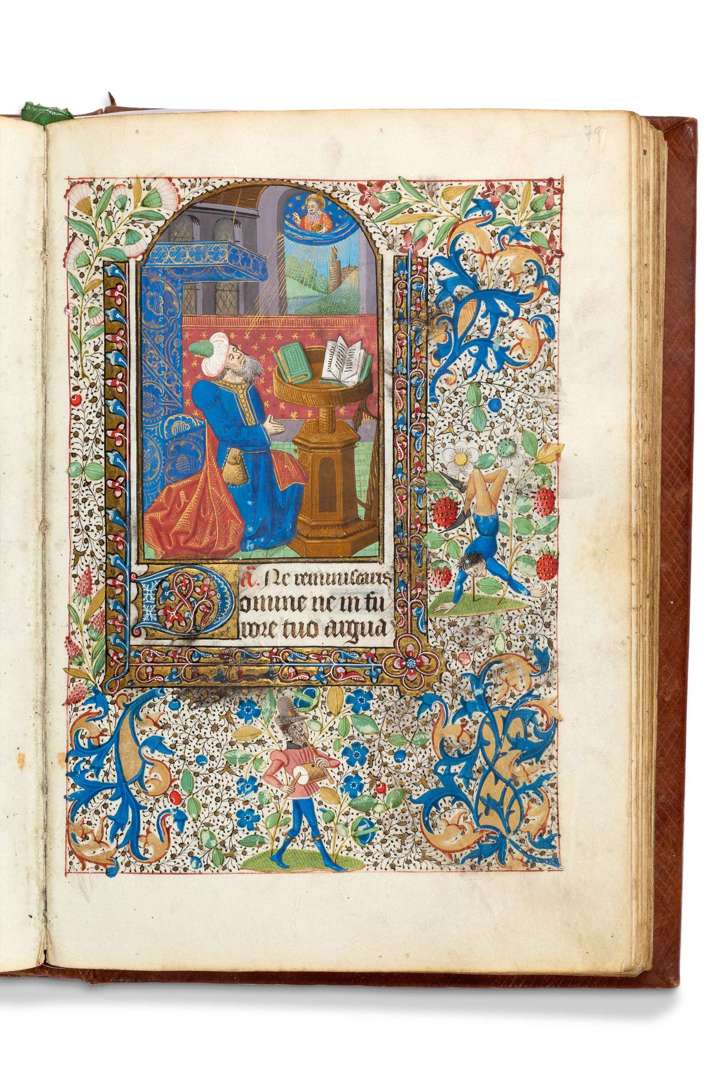 79
ā. Ne reminiscaris
Domine ne in fu
rore tuo argua